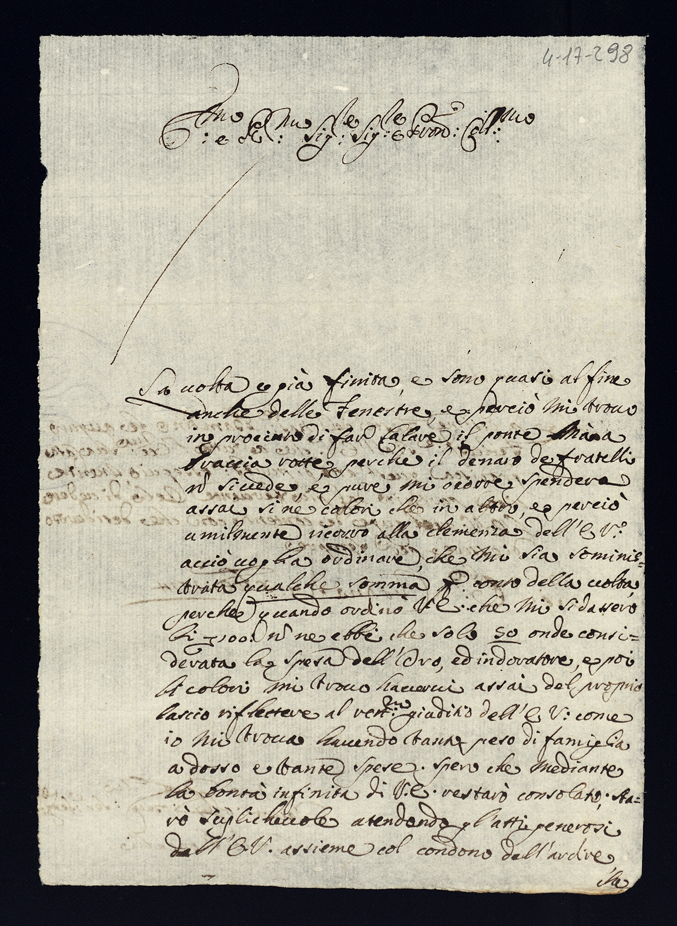 4-17-298
Emo e Rmo Sig:re Sig:re e Pron: Col:mo
La volta e già finita, e sono quasi al fine
anche delle Fenestre, e perciò mi trovo
in procinto di far calare il ponte
braccia rotte perche il denaro de fratelli
n si vede, e pure mi occore spendere
assai si ne colori che in altro, e perciò
umilmente ricorro alla clemenza dell'E.V.
acciò voglia ordinare, che mi sia sominis=
trata qualche somma p conto della volta
perche quando ordinò V.E. che mi si dassero
n ne ebbi che solo 50 onde consi=
derata la spesa dell'Oro, ed indoratore, e poi
li colori mi trovo havervi assai del proprio
lascio riflettere al giuditio dell'E V: come
io mi trova havendo tanto peso di famiglia
adosso e tante spese. spero che mediante
la bontà infinita di V.E. restarò consolato, sta=
rò suplichevole atendendo gl'atti generosi
dell'E V. assieme col condono dell'ardire